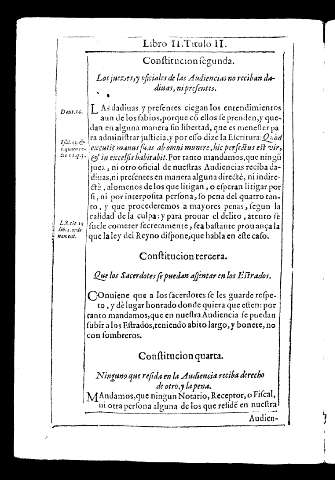 Libro II. Titulo II.
Constitucion segunda.
Los juezes, y oficiales de las Audiencias no reciban da-
diuas, ni presentes.
Deut. 16.
LAs dadiuas y presentes ciegan los entendimientos
aun de los sabios, porque cõ ellos se prenden, y que-
dan en alguna manera sin libertad, que es menester pa
ra administrar justicia, y por esso dize la Escritura Quid
excutit manus suas ab omni munere, hic perfectus est vir,
& in excelsis habitabit. Por tanto mandamos, que ningũ
juez, ni otro oficial de nuestras Audiencias reciba da-
diuas, ni presentes en manera alguna directè, ni indire-
ctè, alomenos de los que litigan, o esperan litigar por
si, ni por interposita persona, so pena del quatro tan-
to, y que procederemos a mayores penas, segun la
calidad de la culpa: y para prouar el delito, atento se
suele cometer secretamente, sea bastante prouança la
que la ley del Reyno dispone, que habla en este caso.
Constitucion tercera.
Que los Sacerdotes se puedan assentar en los Estrados.
COnuiene que a los sacerdotes se les guarde respe-
to, y dè lugar honrado donde quiera que esten: por
tanto mandamos, que en nuestra Audiencia se puedan
subir a los Estrados, teniendo abito largo, y bonete, no
con sombreros.
Constitucion quarta.
Ninguno que resida en la Audiencia reciba derecho
de otro, y la pena.
MAndamos, que ningun Notario, Receptor, o Fiscal,
ni otra persona alguna de los que residẽ en nuestra
Audien-